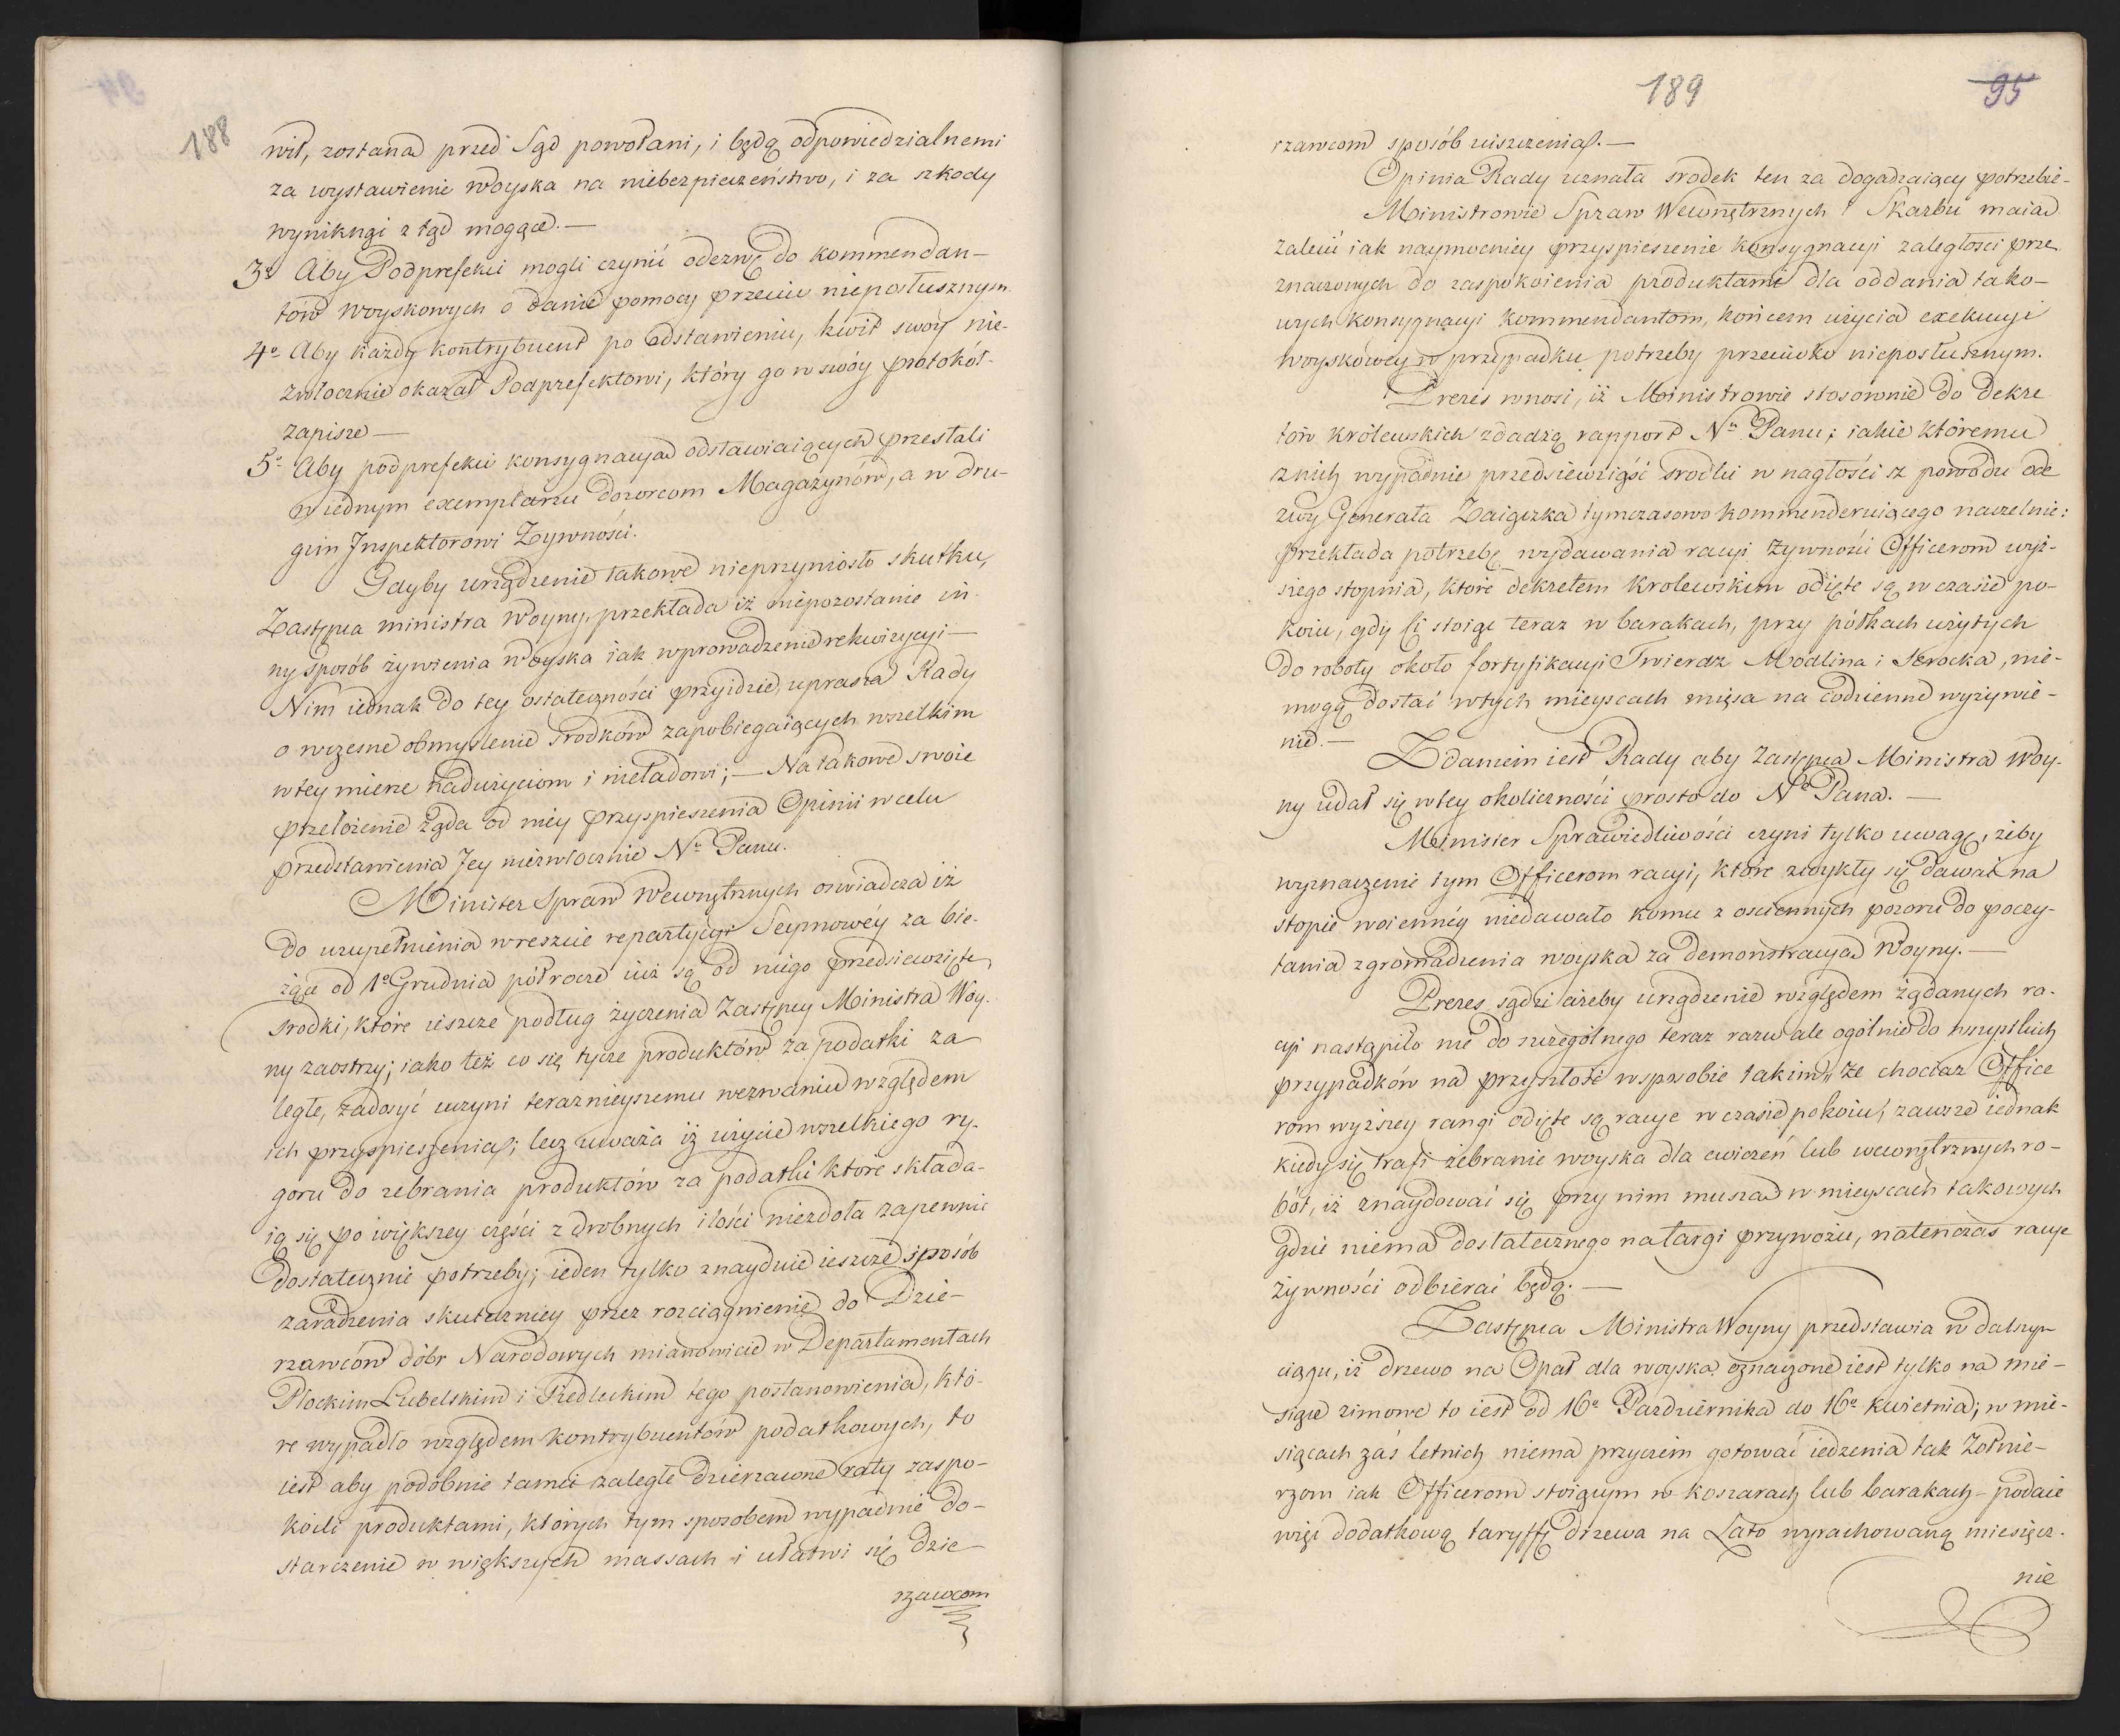 188
wił, zostaną przed Sąd powołani, i będą odpowiedzialnemi
za wystawienie woyska na niebezpieczeństwo, i za szkody
wyniknąi z tąd mogące.—
3o Aby Podprefekci mogli czynić odezwę do kommendan-
tów woyskowych o danie pomocy przeciw nieposłusznym.
4o Aby każdy kontrybuent po odstawieniu, kwit swóy nie-
zwłocznie okazał Podprefektowi, który go w swóy protokół
zapisze—
5o Aby podprefekci konsygnacya odstawiaiących przesłali
w iednym exemplarzu dozorcom Magazynów, a w dru-
gim Inspektorowi Żywności.
Gdyby urządzenie takowe nieprzyniosło skutku,
Zastępca ministra Woyny, przekłada iż niepozostanie in-
ny sposób żywienia woyska iak wprowadzenie rekwizycyi—
Nim iednak do tey ostateczności przyidzie, uprasza Rady
o wczesne obmyślenie srodków zapobiegaiących wszelkim
w tey mierze nadużyciom i nieładowi;— Na takowe swoie
przełożenie żąda od niey przyspieszenia Opinii w celu
przedstawienia Jey niezwłocznie Nu Panu.
Minister Spraw Wewnętrznych oswiadcza iż
do uzupełnienia wreszcie repartycyi Seymowéy za bie-
żące od 1o Grudnia półrocze iuż są od niego przedsiewzięte
srodki, które ieszcze podług życzenia Zastępcy Ministra Woy-
ny zaostrzy; iako też co się tycze produktów za podatki za
ległe, zadosyć uczyni teraznieyszemu wezwaniu względem
ich przyspieszenia; lecz uważa iż użycie wszelkiego ry-
goru do zebrania produktów za podatki które składa-
ią się po większey części z drobnych ilości niezdoła zapewnić
dostatecznie potrzeby; ieden tylko znayduie ieszcze sposób
zaradzenia skuteczniey przez rozciągnienie do Dzie-
rzawców dóbr Narodowych mianowicie w Departamentach
Płockim Lubelskim i Siedleckim tego postanowienia, któ-
re wypadło względem kontrybuentów podatkowych, to
iest aby podobnie tamci zaległe dzierzawne raty zaspo-
koili produktami, których tym sposobem wypadnie do-
starczenie w większych massach i ułatwi się dzie-
rzawcom
189
95
rzawcom sposób uiszczenia.—
Opinia Rady uznała srodek ten za dogadzaiący potrzebie-
Ministrowie Spraw Wewnętrznych i Skarbu maią
zalecić iak naymocniey przyspieszenie konsygnacyi zaległości prze
znaczonych do zaspokoienia produktami dla oddania tako-
wych konsygnacyi kommendantom, końcem użycia exekucyi
woyskowey w przypadku potrzeby przeciwko nieposłusznym.
Prezes wnosi, iż Ministrowie stosownie do dekre
tów królewskich zdadzą rapport Nu Panu; iakie któremu
z nich wypadnie przedsiewziąść srodki w nagłości z powodu ode
zwy Generała Zaiączka tymczasowo kommenderuiącego naczelnie:
przekłada potrzebę wydawania racyi żywności Officerom wyż-
szego stopnia, które dekretem krolewskim odięte są w czasie po-
koiu, gdy ci stoiąc teraz w barakach, przy półkach użytych
do roboty około fortyfikacyi Twierdz Modlina i Serocka, nie-
mogą dostać w tych mieyscach mięsa na codzienne wyżywie-
nie.—
Zdaniem iest Rady aby Zastępca Ministra Woy-
ny udał się w tey okoliczności prosto do No Pana.—
Minister Sprawiedliwości czyni tylko uwagę, żeby
wyznaczenie tym Officerom racyi, które zwykły się dawać na
stopie woienney niedawało komu z osciennych pozoru do poczy-
tania zgromadzenia woyska za demonstracyą Woyny.—
Prezes sądzi ażeby urządzenie względem żądanych ra-
cyi nastąpiło nie do szczególnego teraz razu ale ogólnie do wszystkich
przypadków na przyszłość w sposobie takim „że chociaż Office
rom wyższey rangi odięte są racye w czasie pokoiu, zawsze iednak
kiedy się trafi zebranie woyska dla cwiczeń lub wewnętrznych ro-
bót, iż znaydować się przy nim muszą w mieyscach takowych
gdzie niema dostatecznego na targi przywozu, natenczas racye
żywności odbierać będą.—
Zastępca Ministra Woyny przedstawia w dalszym
ciągu, iż drzewo na Opał dla woyska oznaczone iest tylko na mie-
siące zimowe to iest od 16o Pazdziernika do 16o kwietnia; w mie-
siącach zaś letnich niema przyczem gotować iedzenia tak Żołnie-
rzom iak Officerom stoiącym w koszarach lub barakach – podaie
więc dodatkową taryffę drzewa na Lato wyrachowaną miesięcz-
nie